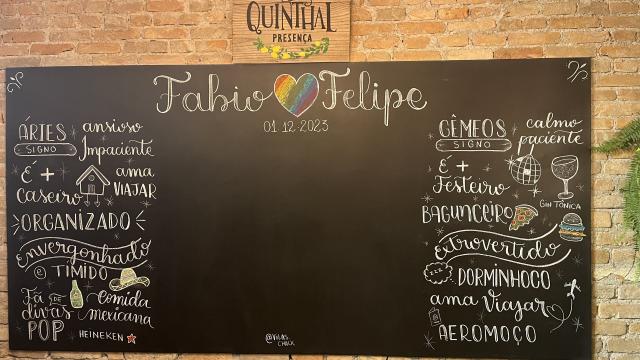 QUINTHAL
PRESENÇA
Fabio Felipe
01.12.2023
ÁRIES
SIGNO
ansioso
Impaciente
É +
caseiro
ama
VIAJAR
ORGANIZADO
envergonhado
e TÍMIDO
Fã DE
divas
POP
Comida
mexicana
HEINEKEN
GÊMEOS
SIGNO
calmo
paciente
É +
Festeiro
GIN TÔNICA
BAGUNCEIRO
extrovertido
ZZZ
DORMINHOCO
ama viajar
AEROMOÇO